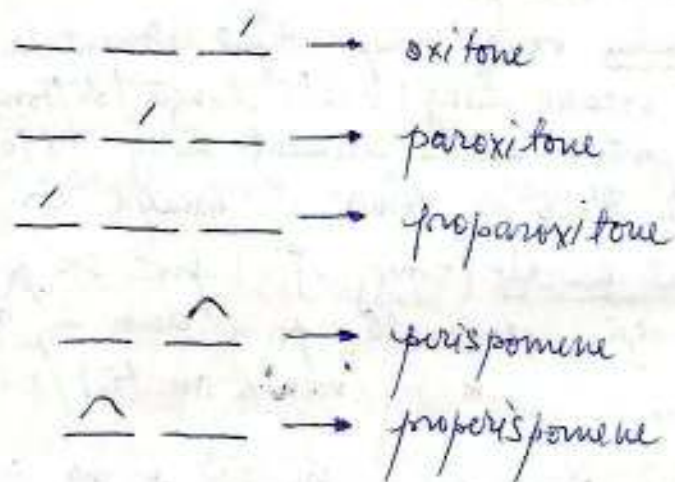 oxitone
paroxitone
proparoxitone
perispomene
properispomene